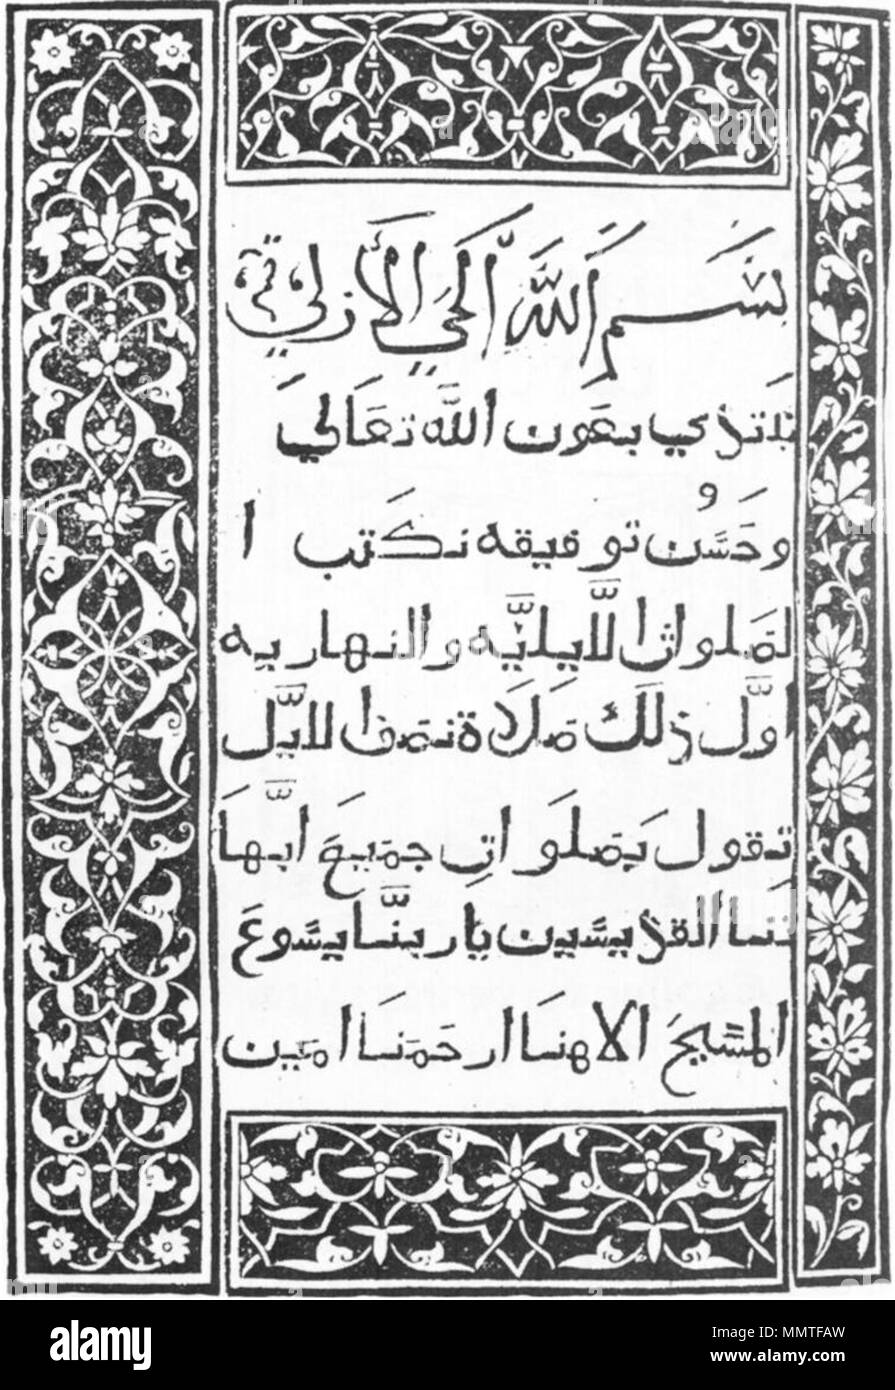 بسم الله الحي الأزلي
نبتدي بعون الله تعالي
وحسن توفيقه نكتب ا
لصلواة الليليه والنهاريه
اول ذلك صلاة نصف الليل
تقول بصلوات جميع ابها
تنا القديسين يا ربنا يسوع
المسيح الاهنا ارحمنا امين
alamy
Image ID: MMTFAW
www.alamy.com